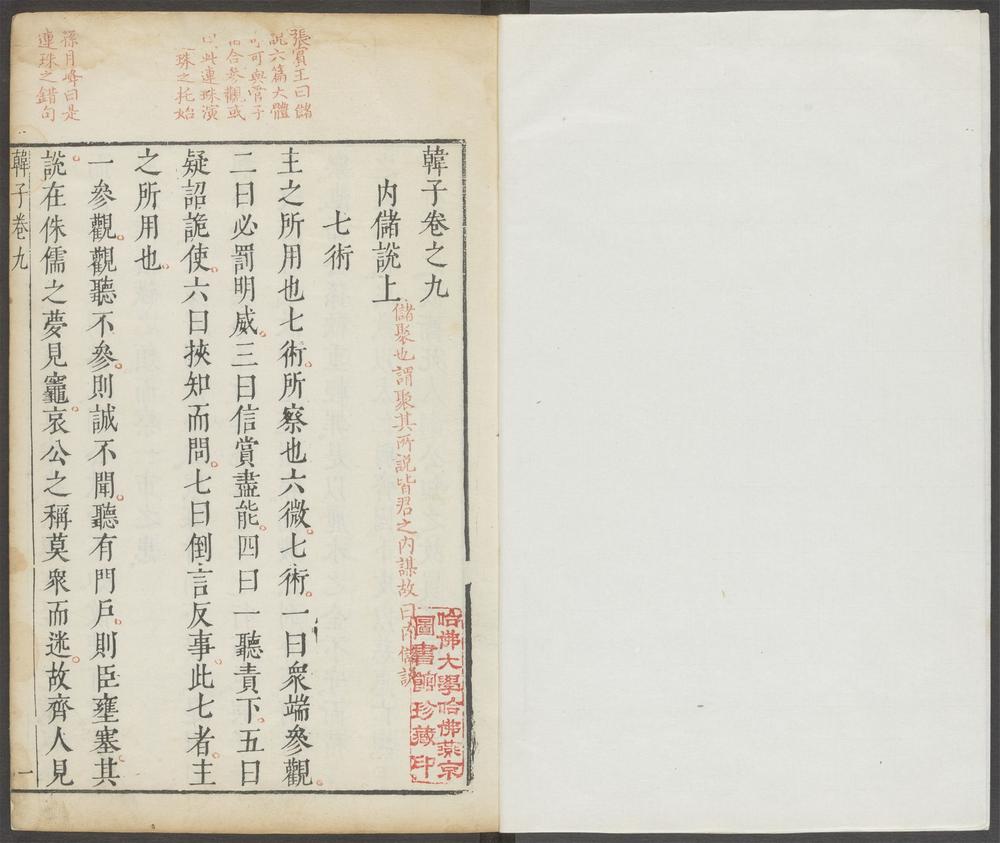 張賓王曰儲
說六篇大體
可與管子
合參觀或
此連珠演
珠之托始
孫月峰曰是
連珠之錯句
韓子卷之九
內儲說上
儲聚也謂聚其所說皆君之內謀故曰內儲說
七術
主之所用也七術所察也六微七術一曰衆端參觀
二曰必罰明威三曰信賞盡能四曰一聽責下五曰
疑詔詭使六曰挾知而問七曰倒言反事此七者主
之所用也
一參觀觀聽不參則誠不聞聽有門戶則臣壅塞其
說在侏儒之夢見竈哀公之稱莫衆而迷故齊人見
韓子卷九
一
哈佛大學哈佛燕京
圖書館珍藏印